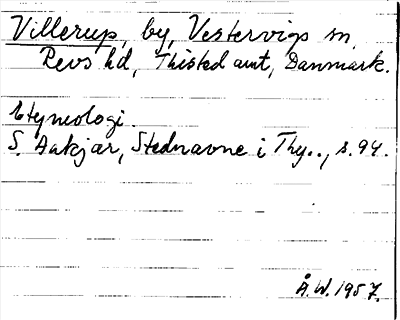 Villerup, by, Vestervigs sn,
Revs hd, Thisted amt, Danmark.
Etymologi.
S. Aakjær, Stednavne i Thy.., s. 94.
Å.W. 1957.